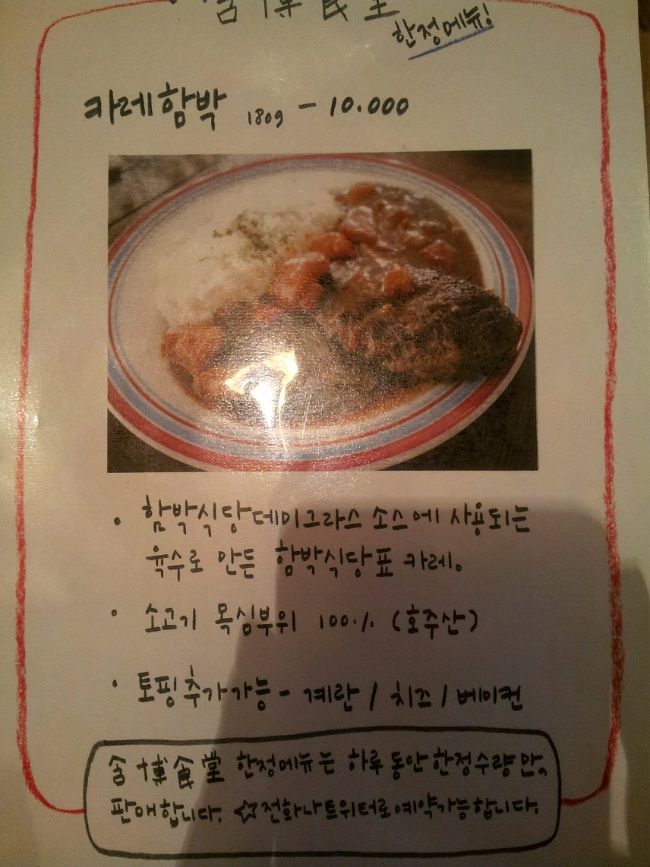 含博食堂
한정메뉴!
카레함박 180g - 10.000
• 함박식당데미그라스 소스에 사용되는
육수로 만든 함박식당표 카레。
• 소고기 목심부위 100% (호주산)
• 토핑추가가능 - 계란 / 치즈 / 베이컨
含博食堂 한정메뉴는 하루 동안 한정수량만,
판매합니다. ☆전화나트위터로예약가능합니다.